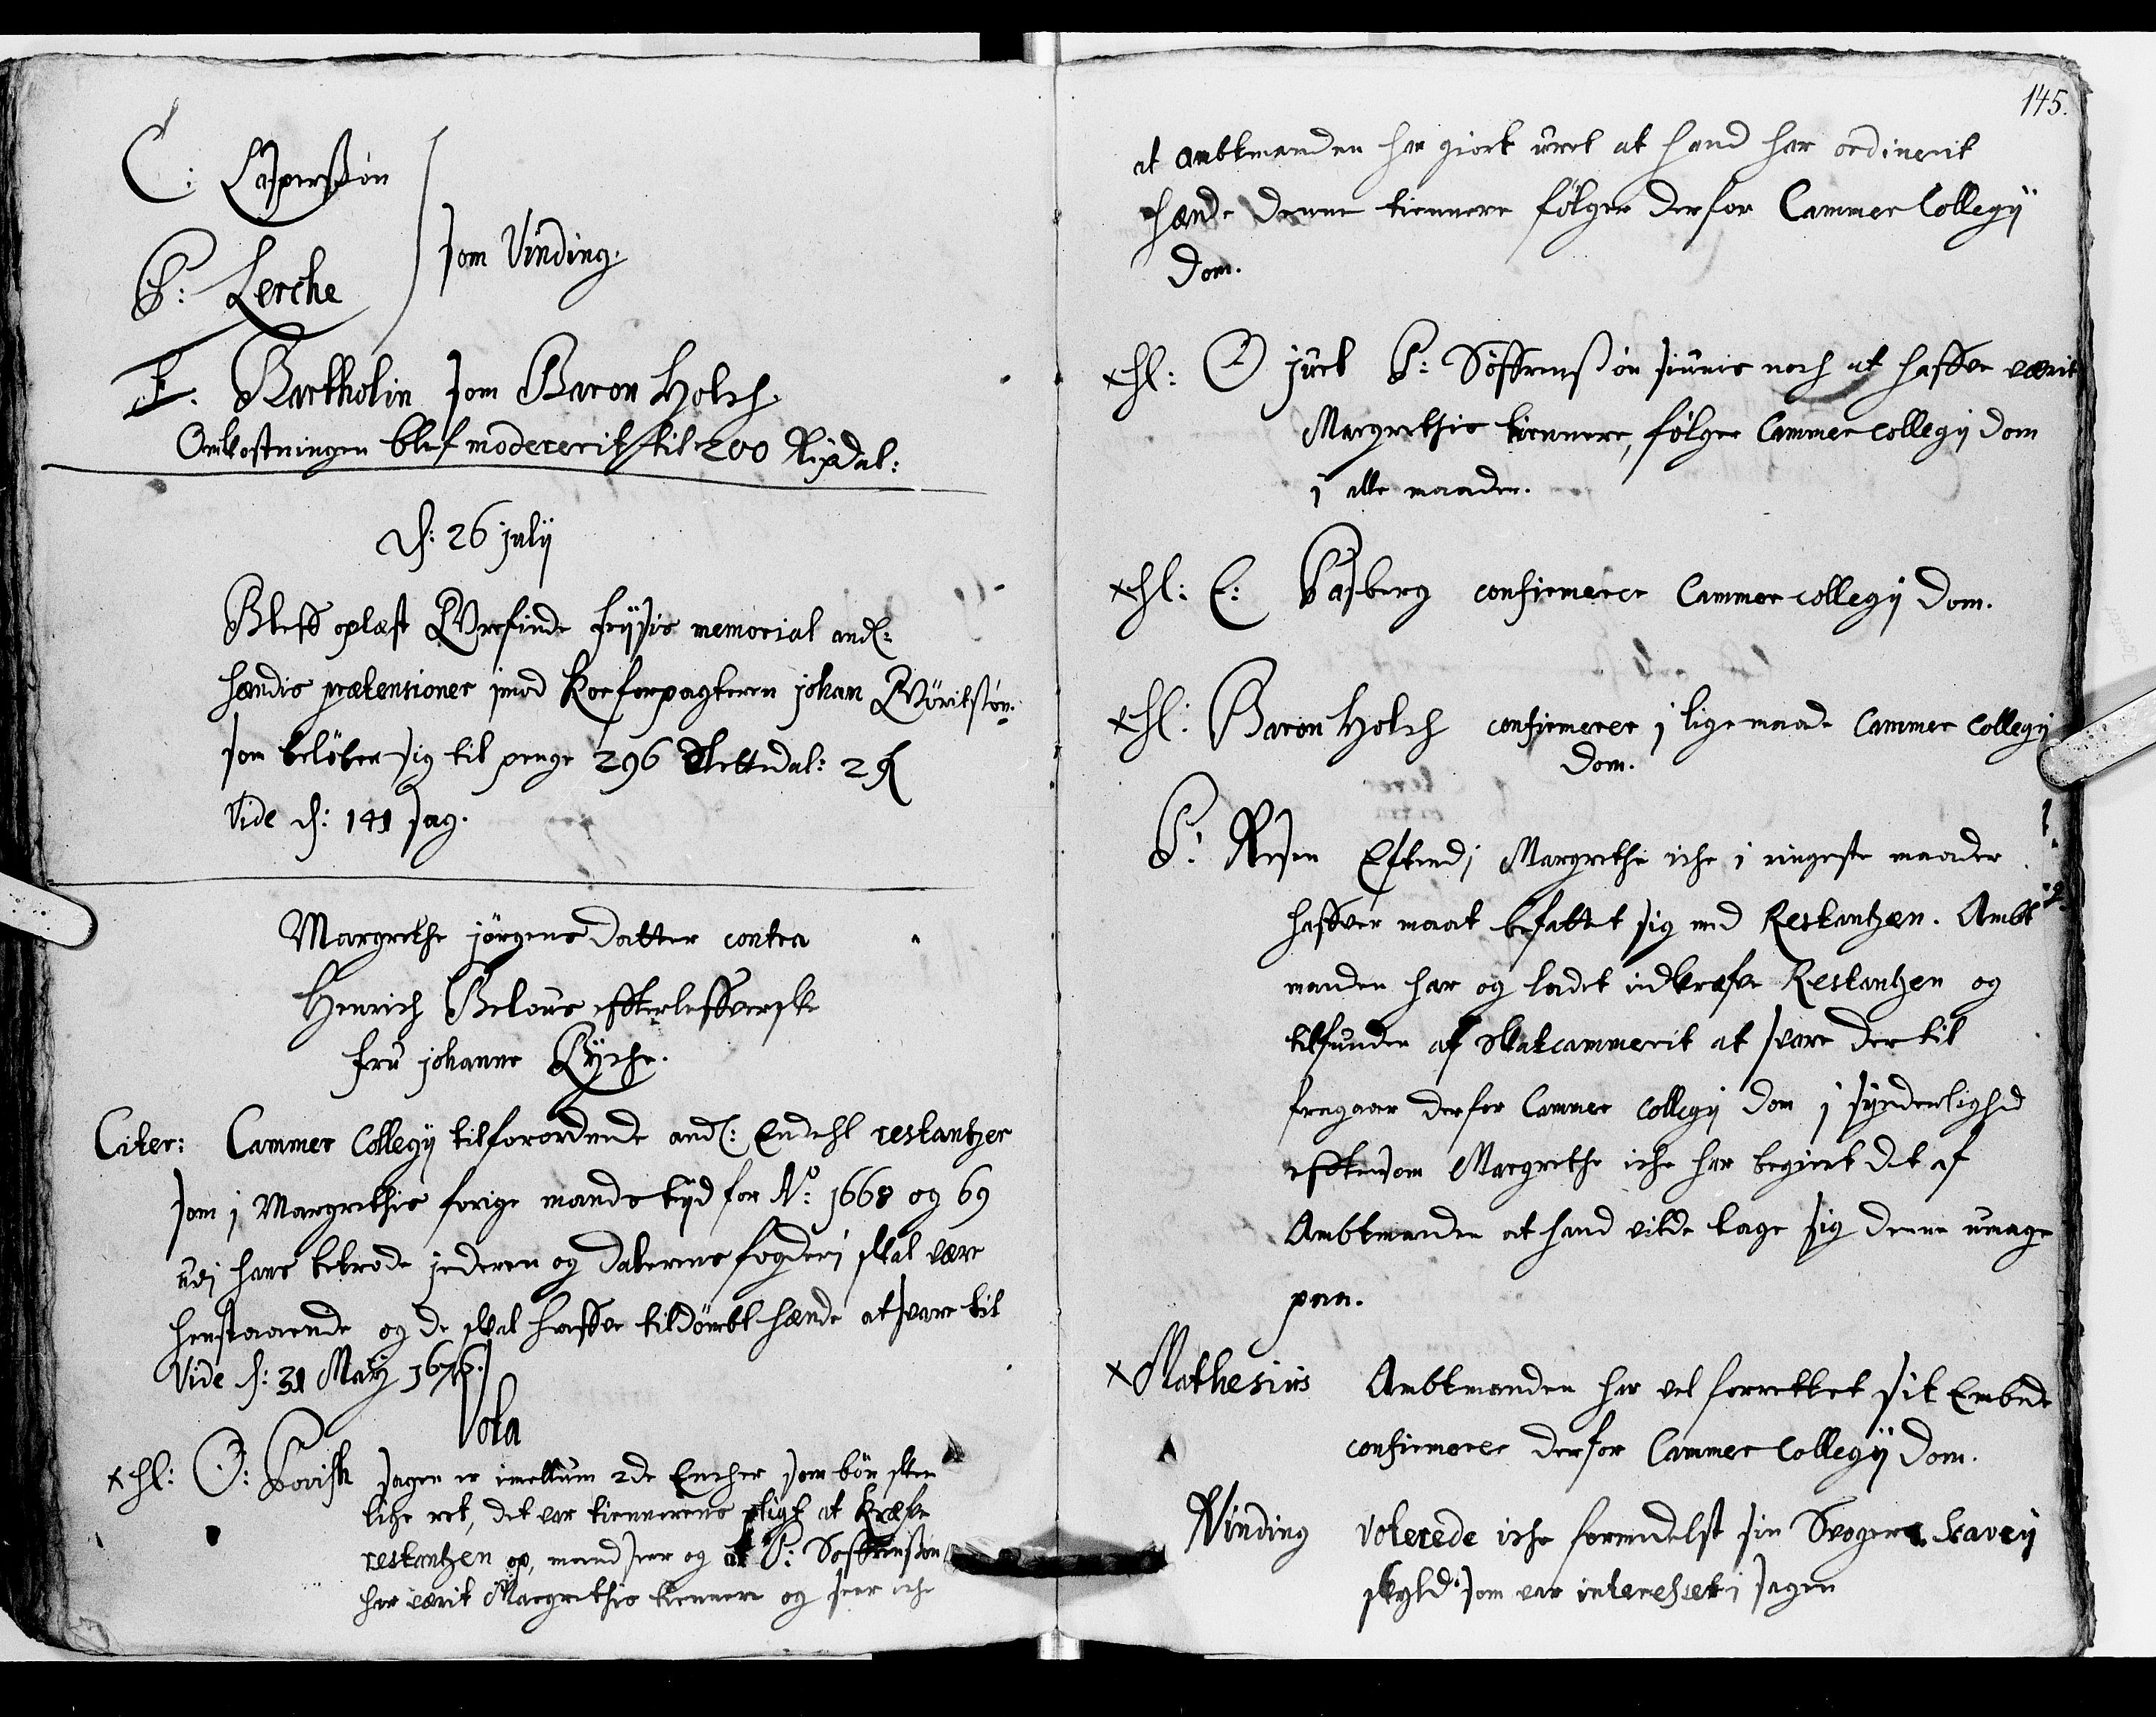 C: Casperßøn
som Vinding.
P: Lerche
F. Bartholin som Baron Holch.
Omkostningen blef modererit til 200 Rixdal:
d: 26 julÿ
Bleff oplæst Velfinde friisis memorial and:
hændis prætensioner imod Kornforpagteren johan
som beløber sig til penge 296 Slettedal: 2
Vide d: 141 sag.
Margrethe jørgens datter contra
Henrich Belous effterlefferske
fru johanne Rÿtche.
Citer: Cammer Collegÿ tilforordnede and: Endehl restantzer
som j Margrethis forige mands tijd for No: 1668 og 69
udj hans betrode jederen og Dalernes fogderj skal være
henstaaende og de skal haffve tildømbt hænde at svare til
Vide d: 31 Maij 1676.
Vota
x hl: O: sagen er imellum 2de Encher som bør skee
lige ret, det var tiennerens pligt at kræfve
restantzen op, mand seer og at P: Søffrenßøn
har værit Margrethis tiennere og seer iche
145.
at ambtmanden har giort uret at hand har ordinerit
hænde denne tiennere følger derfor Cammer Collegÿ
Dom.
x hl: O juel P: Søffrenßøn siunis noch at haffve værit
Margrethis tiennere, følger Cammer collegij dom
j alle maader.
x hl: E: Pasberg confirmerer Cammer collegij Dom.
x hl: Baron Holch confirmerer j lige maade Cammer Collegij
Dom.
P: Resen Efterdj Margrethe iche i ringeste maader
haffver maat befattet sig med Restantzen. Ambt
manden har og ladet indkræfve Restantzen og
tilfunden af Skatcammerit at svare der til
fragaar derfor Cammer collegij dom j sÿnderlighed
effttersom Margrethe iche har begiert det af
Ambtmanden at hand vilde tage sig denne umage
paa.
x Mathesius Ambtmanden har vel forrettet sit Embede
confirmerer derfor Cammer Collegÿ Dom.
Vinding voterede iche formedelst sin Svogers Scavej
skyld som var interesseret i sagen